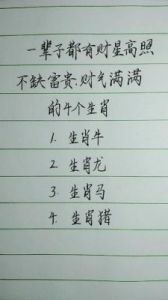 一辈子都有财星高照
不缺富贵.财气满满
的4个生肖
1. 生肖牛
2. 生肖龙
3. 生肖马
4. 生肖猪